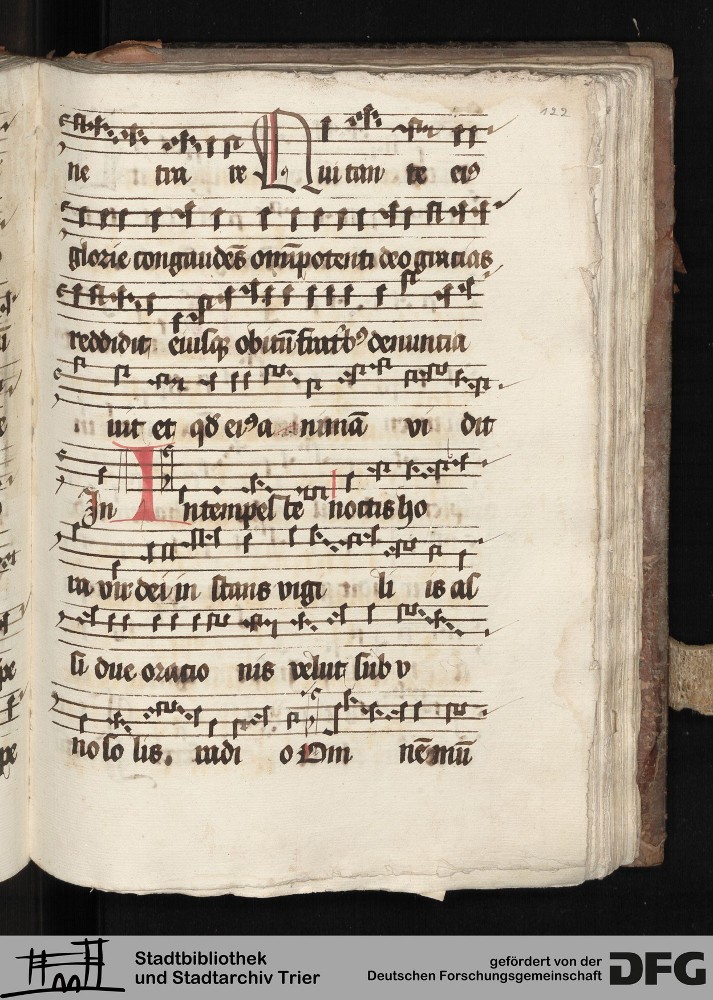 122
ne tra re Qui tan te eiꝰ
glorie congaudēs om̄ipotenti deo gracias
reddidit eiusqꝫ obitū frat̄bꝰ denuncia
uit et qd̄ eiꝰ animā vi dit
In Intempeste noctis ho
ra vir dei in stans vigi li is as
si due oracio nis velut sub v
no so lis. radi o Om nē mū
Stadtbibliothek
und Stadtarchiv Trier
gefördert von der
Deutschen Forschungsgemeinschaft
DFG